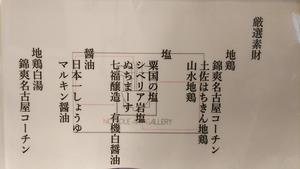 厳選素財
地鶏
錦爽名古屋コーチン
土佐はちきん地鶏
山水地鶏
塩
粟国の塩
シベリア岩塩
ぬちまーす
七福醸造 有機白醤油
醤油
日本一しょうゆ
マルキン醤油
地鶏白湯
錦爽名古屋コーチン
GALLERY